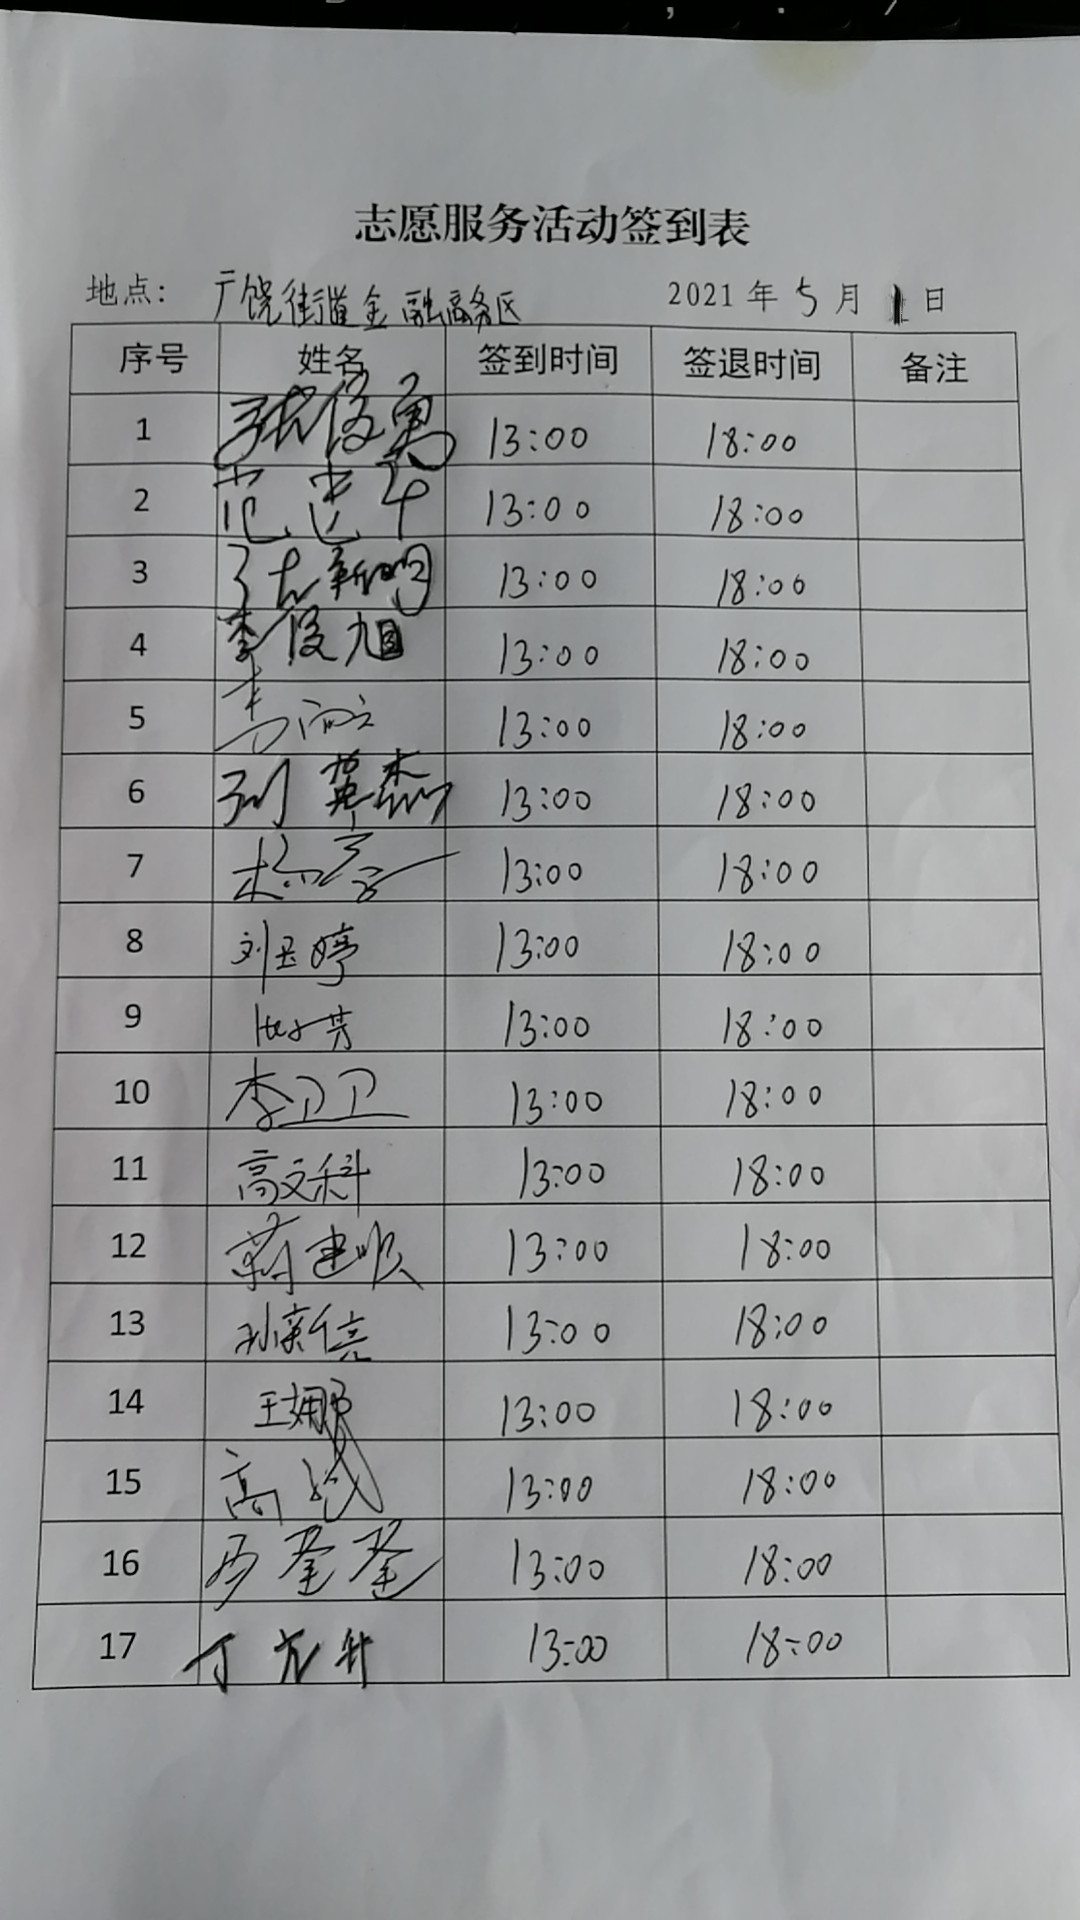 志愿服务活动签到表
地点： 广饶街道金融商务区 2021年5月1日
序号 姓名 签到时间 签退时间 备注
1 张俊勇 13:00 18:00
2 范 13:00 18:00
3 张新明 13:00 18:00
4 李俊旭 13:00 18:00
5 13:00 18:00
6 刘英杰 13:00 18:00
7 杨 13:00 18:00
8 刘玉婷 13:00 18:00
9 芳 13:00 18:00
10 李卫卫 13:00 18:00
11 高文科 13:00 18:00
12 蒋建顺 13:00 18:00
13 孙新亮 13:00 18:00
14 王娜 13:00 18:00
15 高 13:00 18:00
16 13:00 18:00
17 丁 13:00 18:00